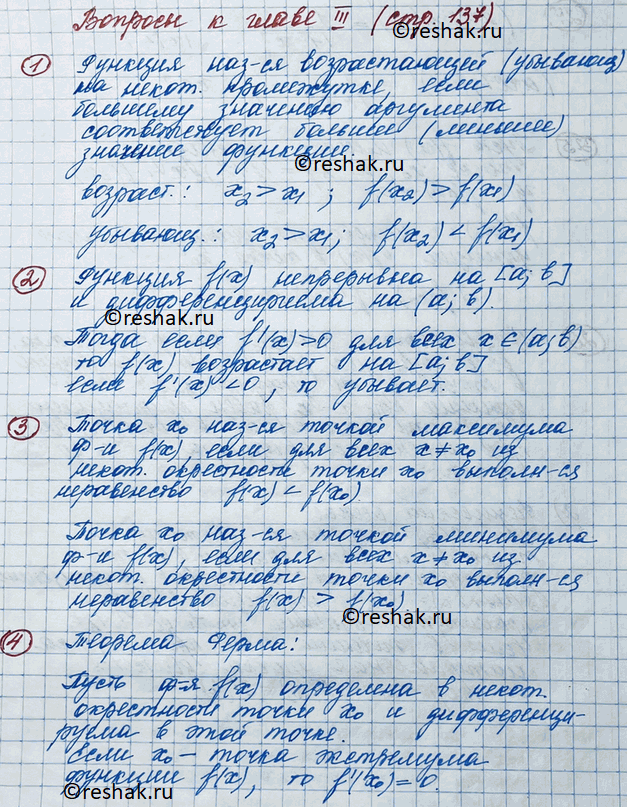 Вопросы к главе III (стр. 137)
1 Функция наз-ся возрастающей (убывающ)
на некот. промежутке, если
большему значению аргумента
соответствует большее (меньшее)
значение функции.
©reshak.ru
возраст.: x₂ > x₁ ; f(x₂) > f(x₁)
убывающ.: x₂ > x₁; f(x₂) < f(x₁)
2 Функция f(x) непрерывна на [a; b]
и дифференцируема на (a; b).
©reshak.ru
Тогда если f'(x)>0 для всех x∈(a;b)
то f(x) возрастает на [a; b]
если f'(x)<0, то убывает.
©reshak.ru
3 Точка x₀ наз-ся точкой максимума
ф-и f(x), если для всех x≠x₀ из
некот. окрестности точки x₀ выполн-ся
неравенство f(x) < f(x₀)
Точка x₀ наз-ся точкой минимума
ф-и f(x), если для всех x≠x₀ из
некот. окрестности точки x₀ выполн-ся
неравенство f(x) > f(x₀)
©reshak.ru
4 Теорема Ферма:
Пусть ф-я f(x) определена в некот.
окрестности точки x₀ и дифференци-
руема в этой точке.
Если x₀ – точка экстремума
функции f(x), то f'(x₀)=0.
©reshak.ru